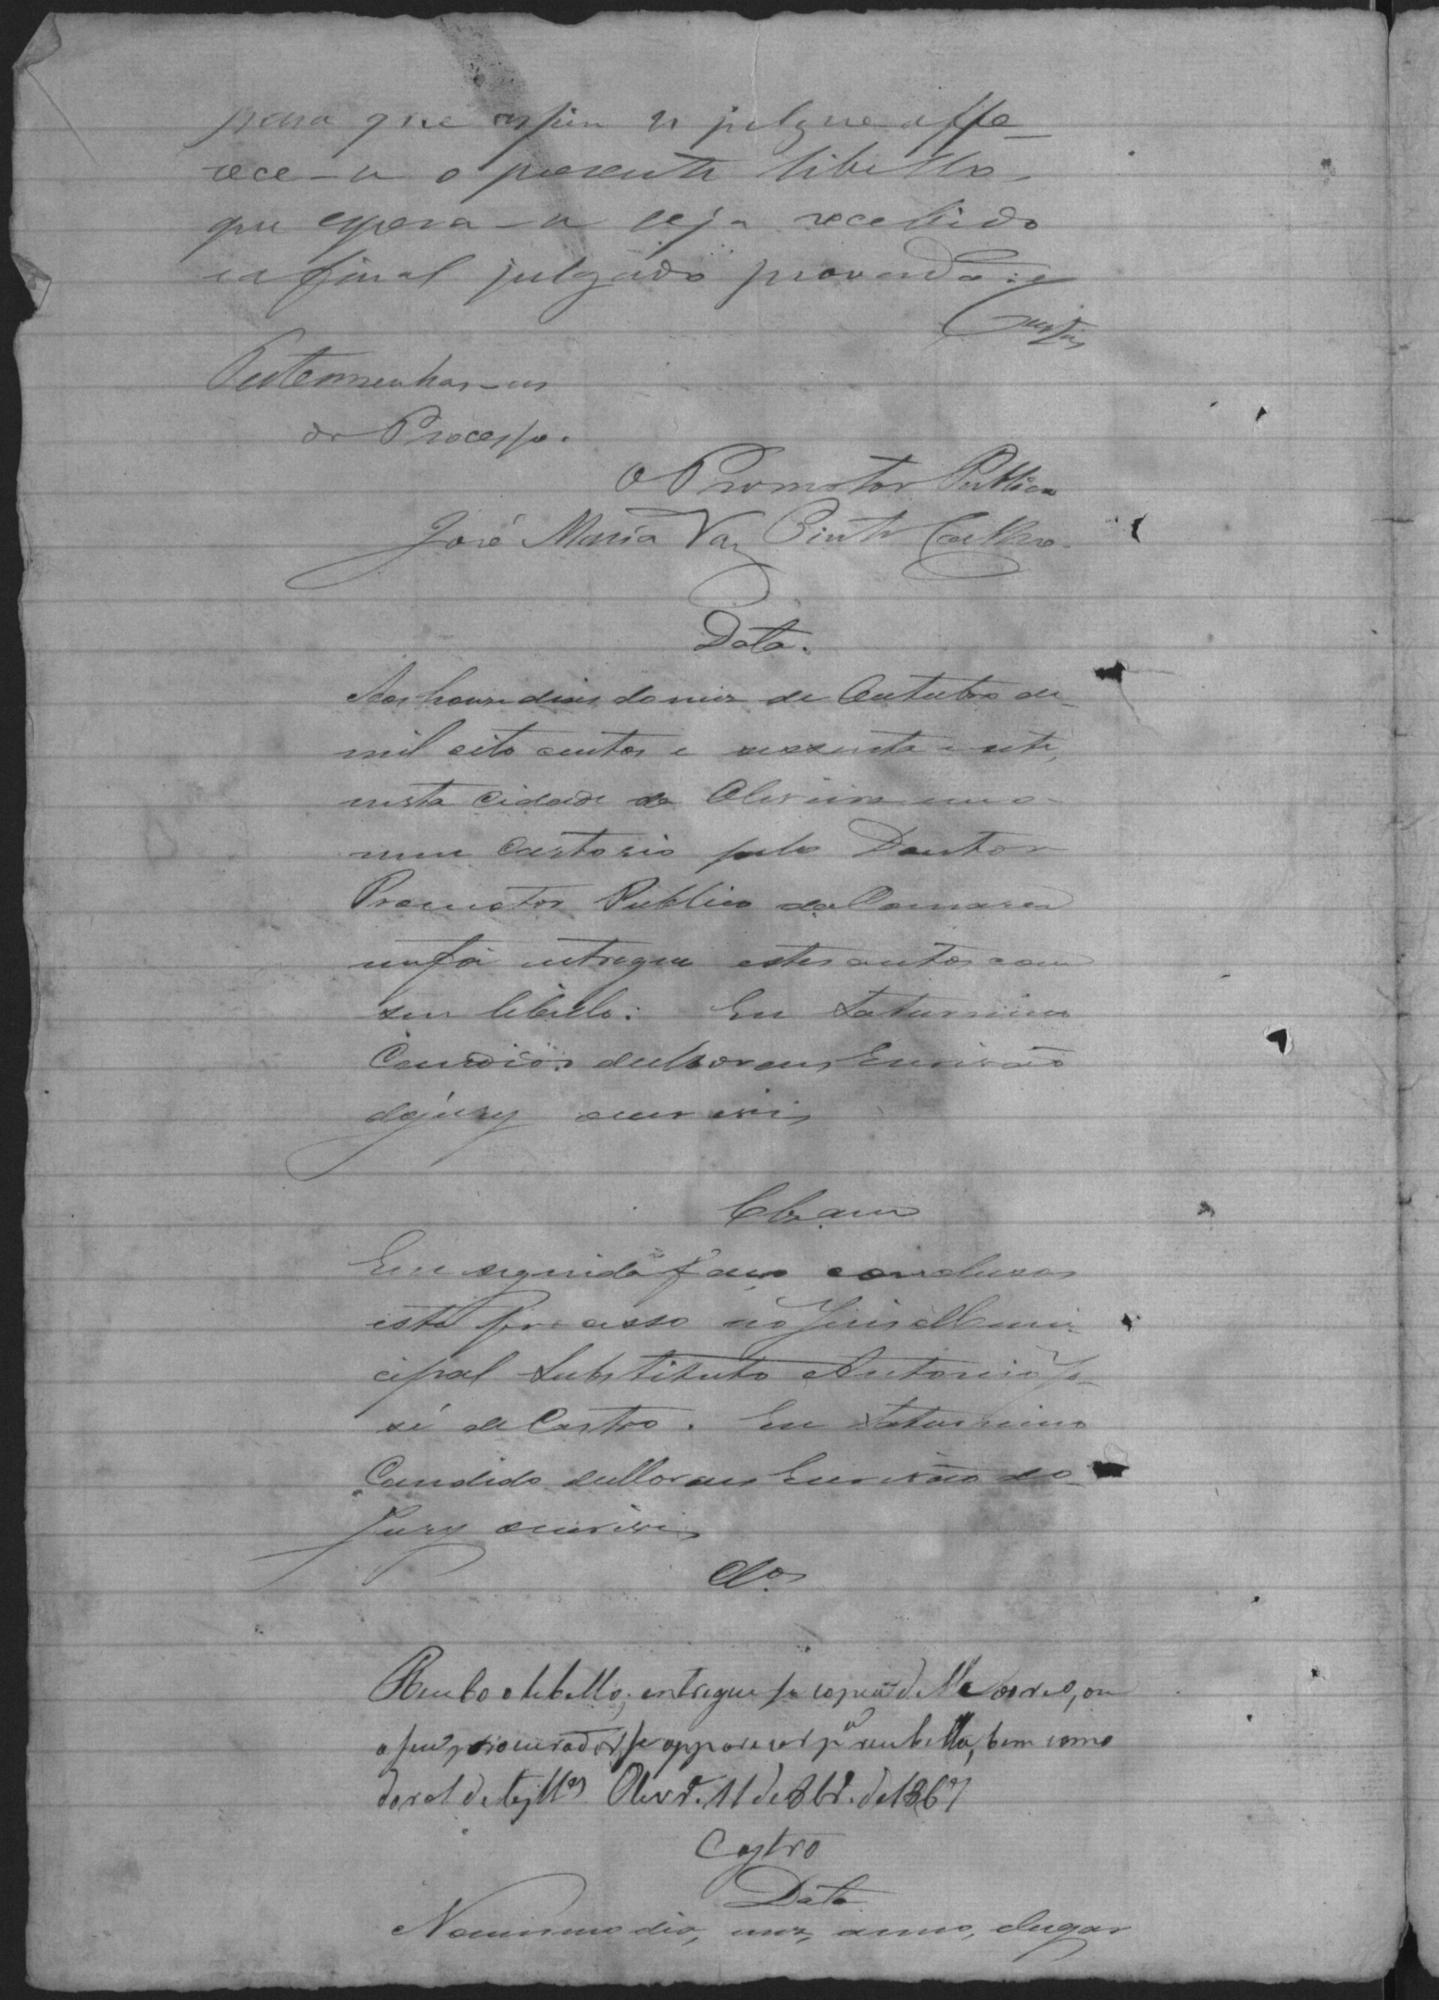 para que assim se julgue offe-
rece-se o presente libello,
que espera-se seja recebido
e a final julgado provado: e
Custas
Testemunhas-as
do Processo.
O Promotor Publico
José Maria Vaz Pinto Coelho
Data.
Aos honze dias do mez de Outubro de
mil oito centos e sessenta e sete,
nesta Cidade de Oliveira em o
meu Cartorio pelo Doutor
Promotor Publico da Comarca
me foi entregue estes autos com
seu libello: Eu Saturnino
Candido de Moraes Escrivão
do jury escrevi
Clzam
Em seguida faço conclusos
este processo ao Juis Muni-
cipal Substituto Antonio Jo-
sé de Castro. Eu Saturnino
Candido de Moraes Escrivão do
Jury escrevi
Clos
Recebo o libello; entregue se copia d'elle ao reo, ou
a seu procurador se apparecer pa recebella, bem como
do rol de testas Olivra. 11 de 8br. de 1867
Castro
Data
No mesmo dia, mez, anno, e lugar